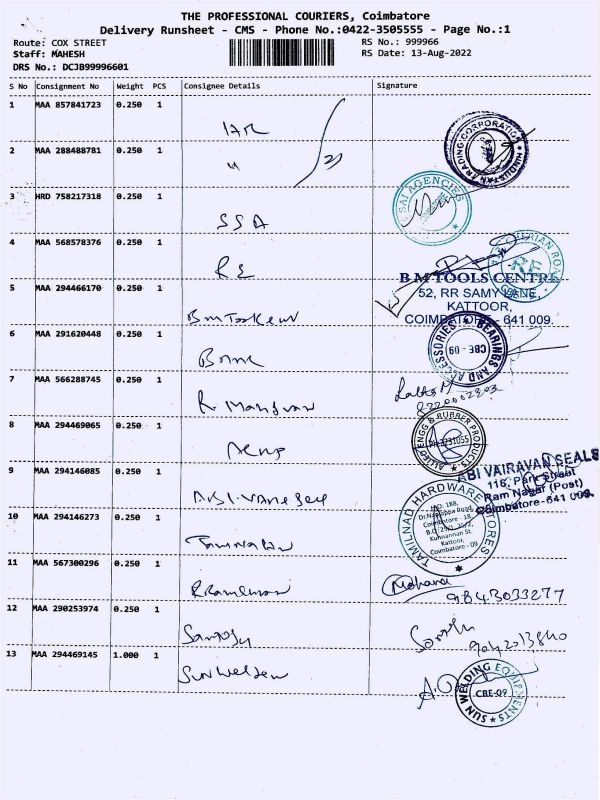 THE PROFESSIONAL COURIERS, Coimbatore
Delivery Runsheet - CMS - Phone No.:0422-3505555 - Page No.:1
Route: COX STREET RS No.: 999966
Staff: MAHESH RS Date: 13-Aug-2022
DRS No.: DCJB99996601
S No Consignment No Weight PCS Consignee Details Signature
1 MAA 857841723 0.250 1
HINDUSTAN TRADING CORPORATION
2 MAA 288488781 0.250 1
3 HRD 758217318 0.250 1 SSA
SAI AGENCIES
4 MAA 568578376 0.250 1 RE
5 MAA 294466170 0.250 1
B M TOOLS CENTRE
52, RR SAMY LANE,
KATTOOR,
COIMBATORE - 641 009.
6 MAA 291620448 0.250 1
BEARINGS AND ACCESSORIES
CBE-09
7 MAA 566288745 0.250 1
8 MAA 294469065 0.250 1
ENGG & RUBBER PRODUCTS
9 MAA 294146085 0.250 1
ABI VAIRAVAN SEALS
116, Park Street
Ram Nagar (Post)
Coimbatore-641 009.
10 MAA 294146273 0.250 1
TAMILNAD HARDWARE STORES
NO. 188,
Coimbatore - 18.
Kattoor,
Coimbatore - 09
11 MAA 567300296 0.250 1
9843033277
12 MAA 290253974 0.250 1
13 MAA 294469145 1.000 1 Sun Welden
SUN WELDING EQUIPMENTS
CBE-09